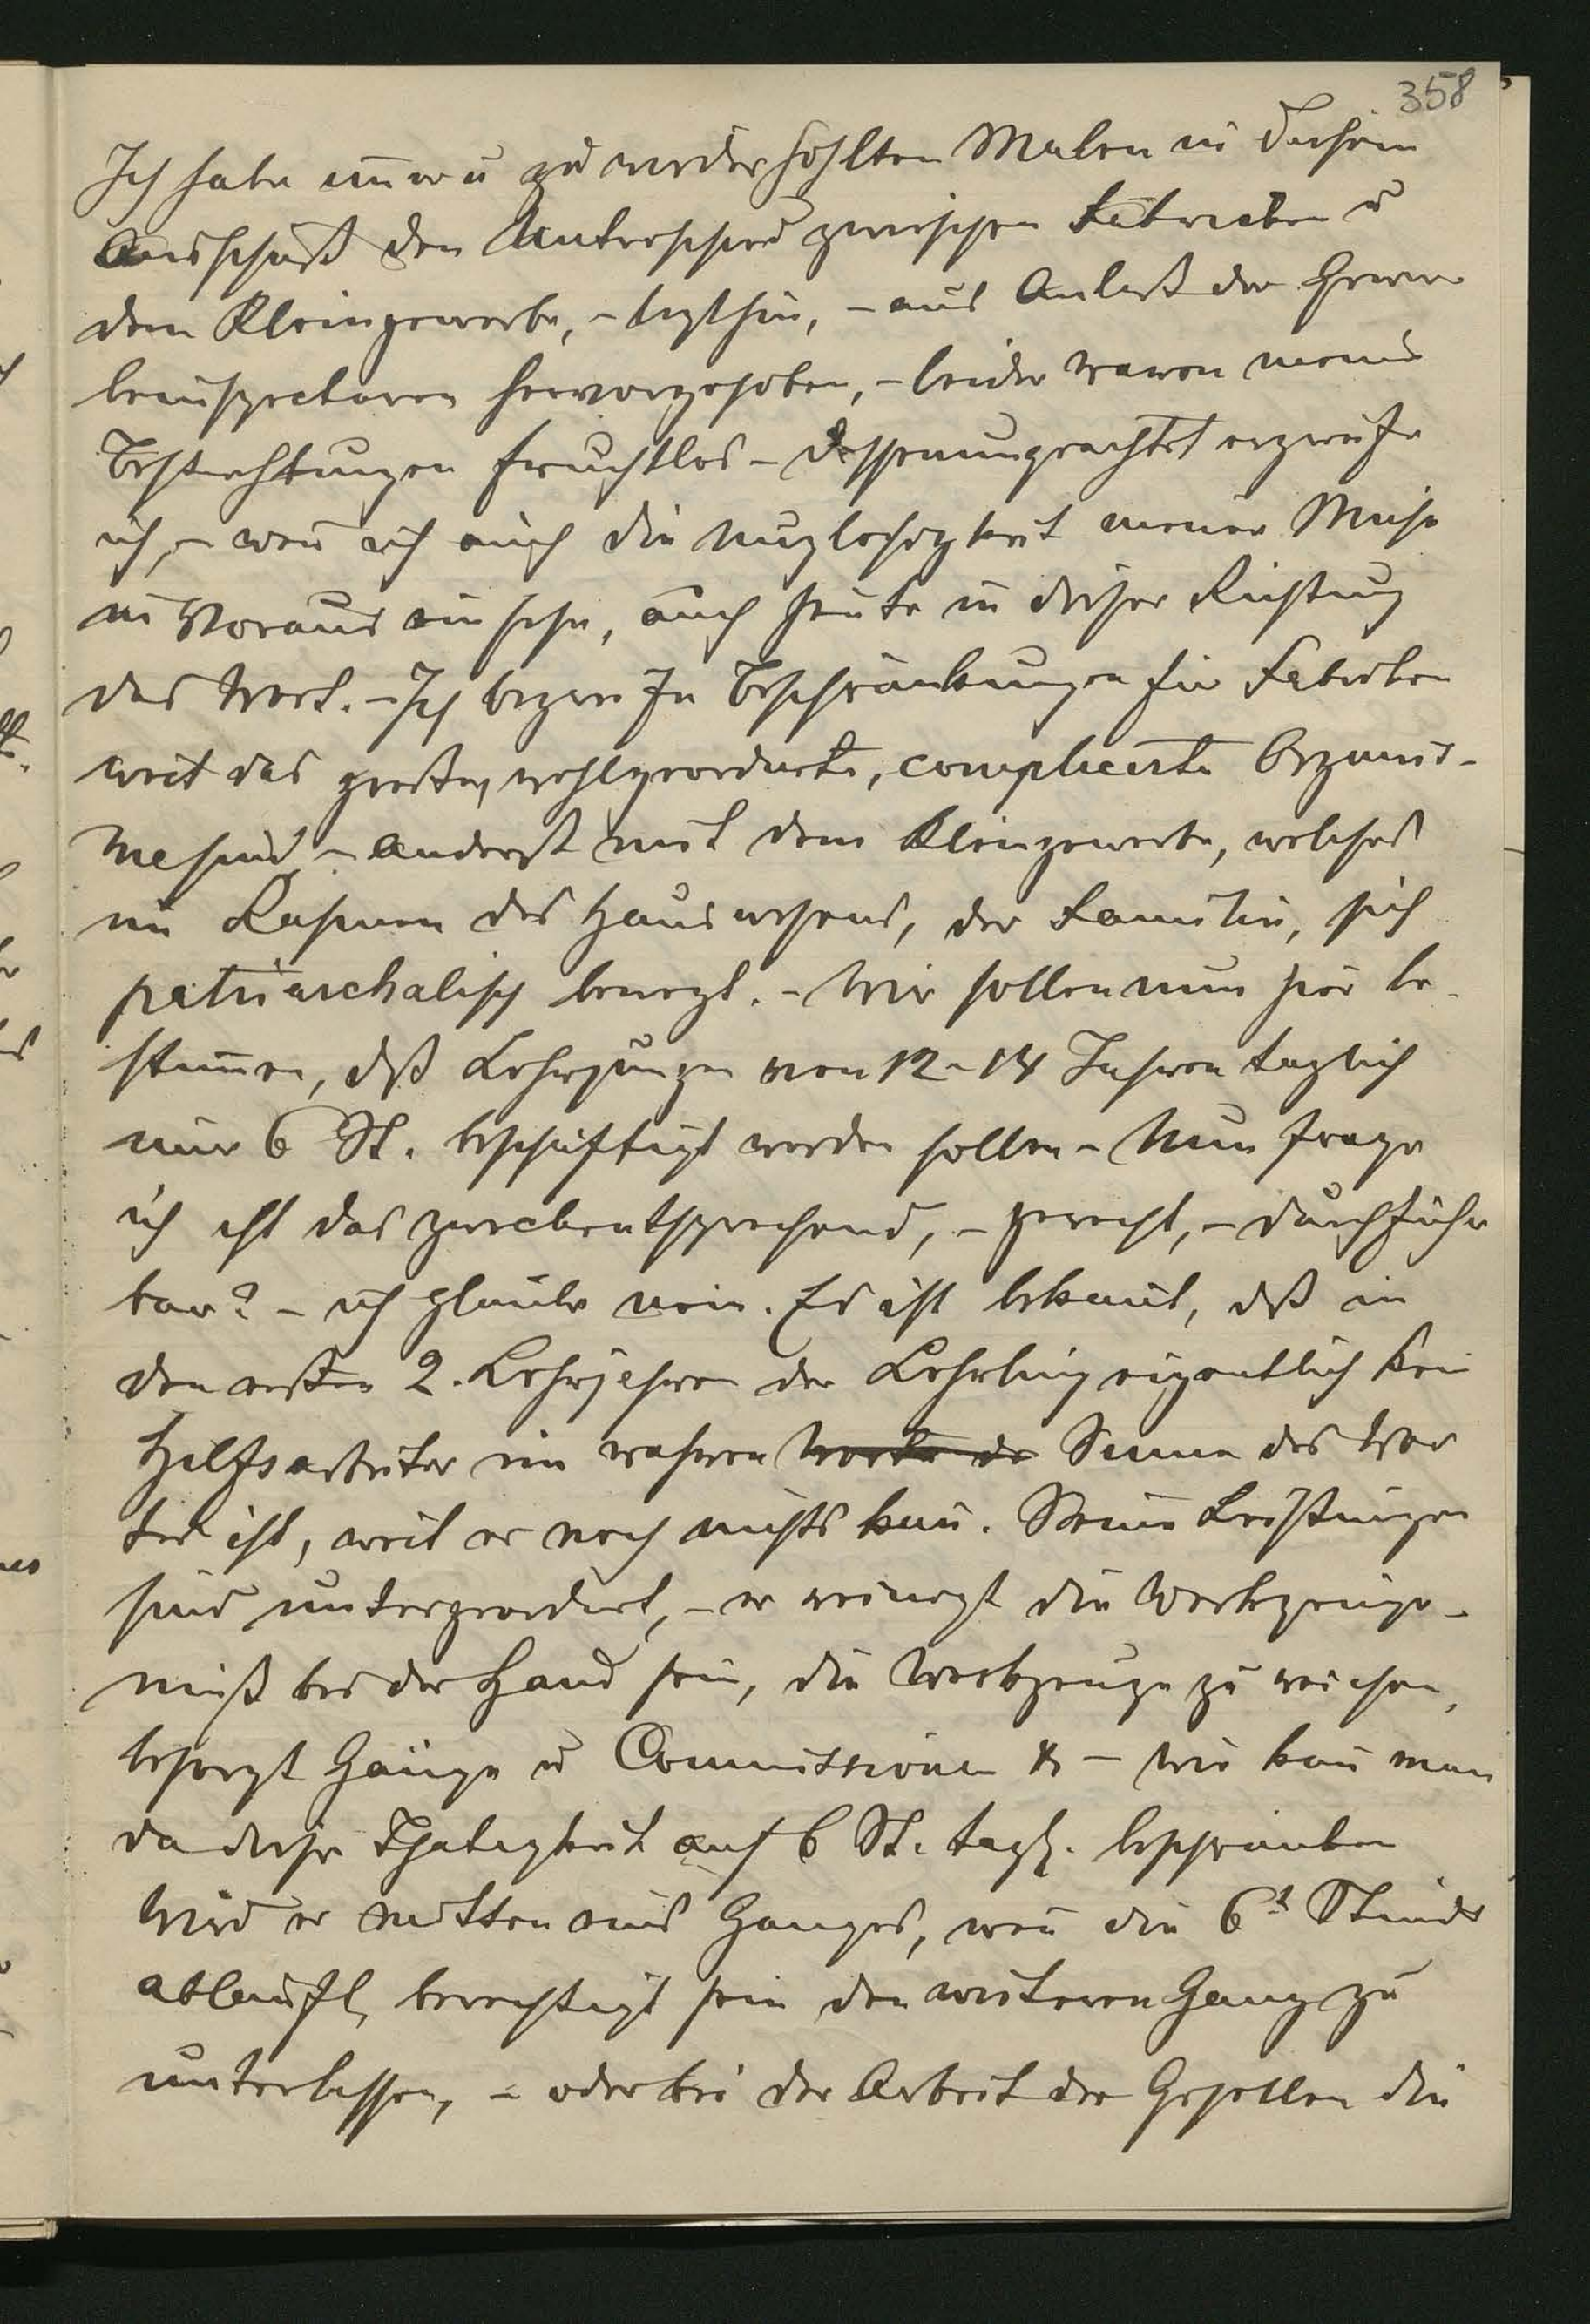 358
Ich habe im̄er u zu wiederhohlten Malen in diesem
Ausschuß den Unterschied zwischen Fabriken u
dem Kleingewerbe, – letzthin, – aus Anlaß der Gewer
beinspectoren hervorgehoben, – leider waren meine
Bestrebungen fruchtlos – dessenungeachtet ergreife
ich, – wen̄ ich auch die Nuzlosigkeit meiner Mühe
im Voraus einsehe, auch heute in dieser Richtung
das Wort. – Ich begreife Beschränkungen für Fabriken
weil das große, wohlgeordnete, complicirte Organis-
me sind, – anderst mit dem Kleingewerbe, welches
im Rahmen des Hauswesens, der Familie, sich
patriarchalisch bewegt. – Wir sollen nun hier be-
stim̄en, daß Lehrjungen von 12–14 Jahren taglich
nur 6 St. beschäftigt werden sollen – Nun frage
ich ist das zweckentsprechend, – gerecht, – durchführ
bar? – ich glaube nein. Es ist bekan̄t, daß in
den ersten 2. Lehrjahren der Lehrling eigentlich kein
Hilfsarbeiter im wahren Worte de Sinne des Wor
tes ist, weil er noch nichts kan̄. Seine Leistungen
sind untergeordnet, – er reinigt die Werkzeuge –
muß bei der Hand sein, die Werkzeuge zu reichen,
besorgt Gänge u Commissionen &c – wie kan̄ man
da diese Thatigkeit auf 6 St. tagl. beschränken
Wird er mitten eines Ganges, wen̄ die 6t Stunde
ablauft, berechtigt sein den weiteren Gang zu
unterlassen, – oder bei der Arbeit der Gesellen die